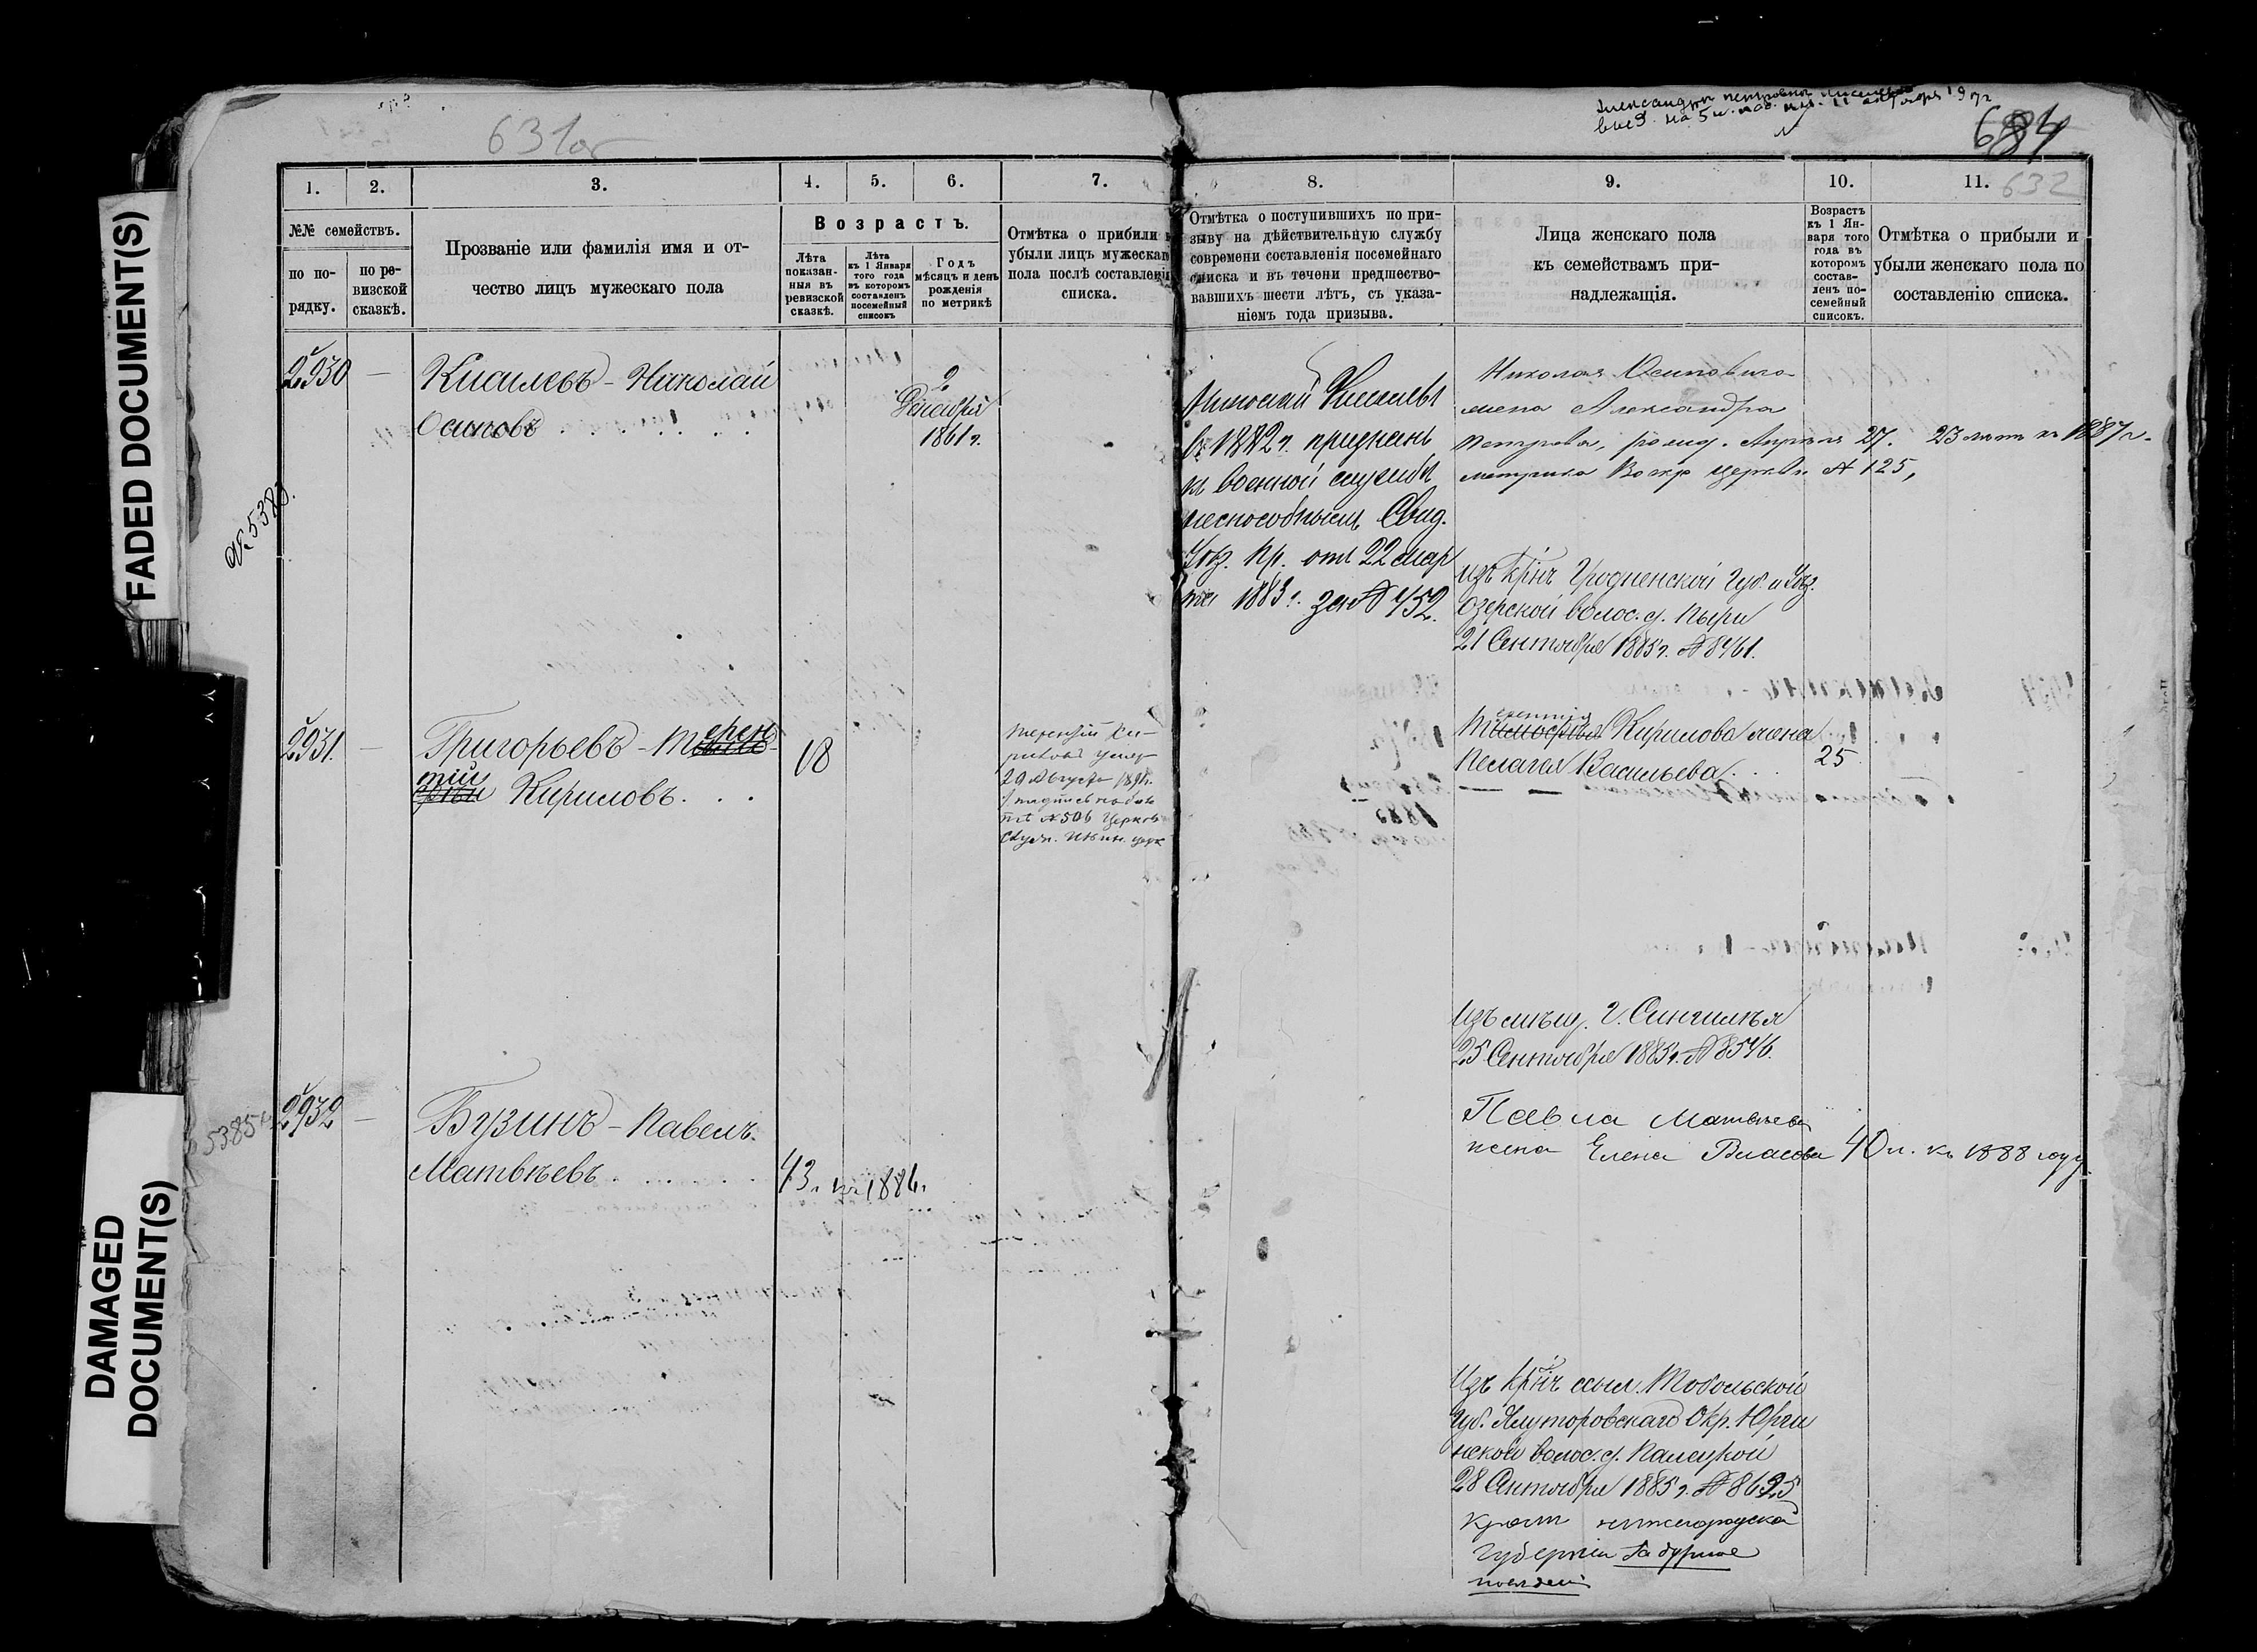 FADED DOCUMENT(S)
DAMAGED
DOCUMENT(S)
631об
Александра Петровна
684
632
1.
2.
3.
4.
5.
6.
7.
8.
9.
10.
11.
№№ семействъ.
по по-
рядку.
по ре-
визской
сказкѣ.
Прозваніе или фамилія имя и от-
чество лицъ мужескаго пола
Возрастъ.
Лѣта
показан-
ныя въ
ревизской
сказкѣ.
Лѣта
къ 1 Января
того года
въ которомъ
составленъ
посемейный
списокъ
Годъ
мѣсяцъ и день
рожденія
по метрикѣ
Отмѣтка о прибыли и
убыли лицъ мужескаго
пола послѣ составленія
списка.
Отмѣтка о поступившихъ по при-
зыву на дѣйствительную службу
современи составленія посемейнаго
списка и въ течени предшество-
вавшихъ шести лѣтъ, съ указа-
ніемъ года призыва.
Лица женскаго пола
къ семействамъ при-
надлежащія.
Возрастъ
къ 1 Ян-
варя того
года въ
которомъ
состав-
ленъ по-
семейный
списокъ.
Отмѣтка о прибыли и
убыли женскаго пола по
составленію списка.
№ 5383.
2930 —
Кисилевъ - Николай
Осиповъ . . . . . . .
2
Декабря
1861 г.
Николай Кисилевъ
въ 1882 г. признанъ
къ военной службѣ
неспособнымъ Свид.
Уѣз. Пр. отъ 22 мар
та 1883 г. за № 452.
Николая Осипова
жена Александра
Петрова, Апрѣля 27. 23 лѣтъ къ 1887 г.
метрика Воскр церкви № 125,
изъ Крнъ Гродненской Губ. и Уѣз.
Озерской волос. д.
21 Сентября 1885 г. № 8461.
2931. —
Григорьевъ - Терен
тій Кириловъ. . .
18
Терентій Ки-
риловъ умер
29 Августа
№ 506 Церков
Терентія Кирилова жена
Пелагея Васильева . . . 25
Изъ мѣщ. г. Сингилѣя
25 Сентября 1885 г. № 8546.
5385
2932 —
Бузинъ - Павелъ
Матвѣевъ . . . . . .
43. къ 1886.
Павла Матвѣева
жена Елена Власова 40 л. къ 1888 году
Изъ Крнъ ссыл. Тобольской
Губ. Ялуторовскаго Окр. Юрги
нской волос. д.
28 Сентября 1885 г. № 8625
Крест нижегородской
Губерніи